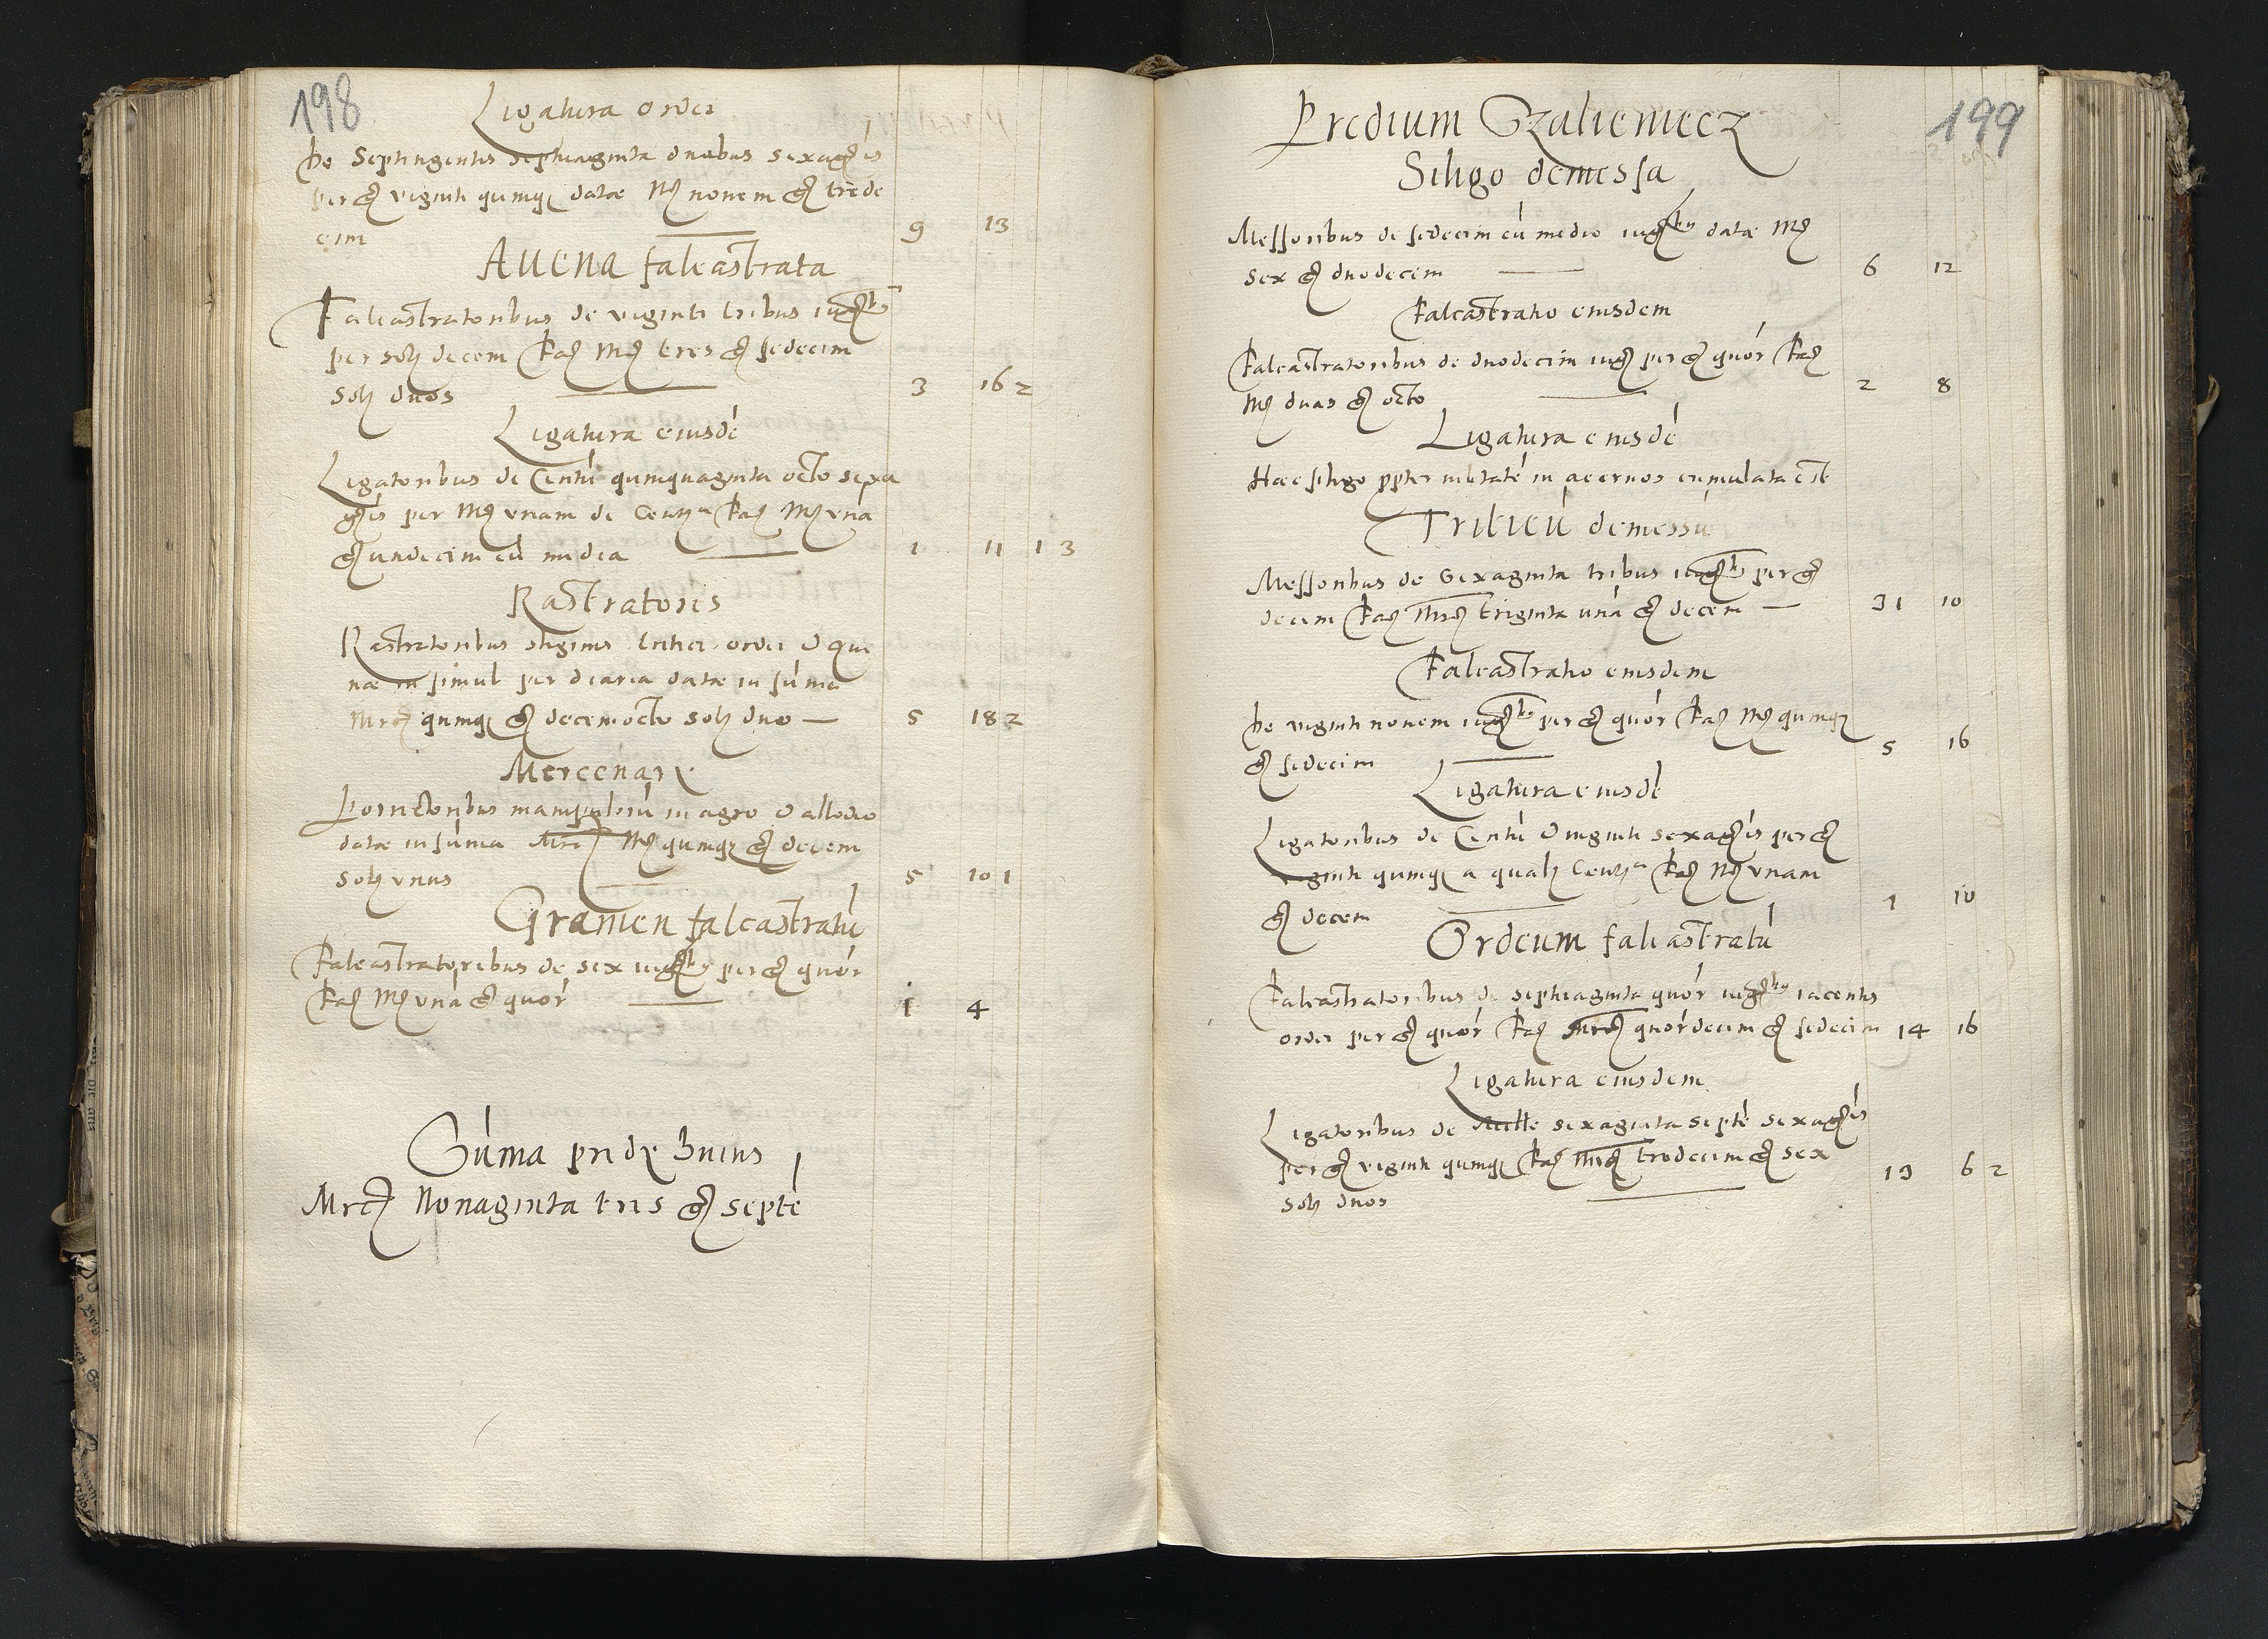 198
Ligatura ordei
De Septingentis septuaginta duabus sexagēis
per gͤ viginti quinqꝫ datae Mͨ novem gͤ trede
cim 9 13
Avena falcastrata
Falcastratoribus de viginti tribus iugͤbꝫ
per solꝫ decem facͥ Mͨ tres gͤ sedecim
solꝫ duos 3 16 2
Ligatura eiusdē
Ligatoribus de Centū quinquaginta octo sexa
gēis per Mͨ unam de facͥ Mͨ una
gͤ undecim cū media 1 11 1 3
Rastratores
Rastratoribus siliginis tritici ordei & ave
nae in simul per diaria datae in sūma
Mrcͨ quinqꝫ gͤ decem octo solꝫ duo 5 18 2
Mercenarÿ
Porrectoribus manipulorū in agro & allodio
datae in sūma Mͨ quinqꝫ gͤ decem
solꝫ unus 5 10 1
Gramen falcastratū
Falcastratoribus de sex iugͤbꝫ per gͤ quōr
facͥ Mͨ unā gͤ quōr 1 4
Sūma prdÿ huius
Mrcͨ Nonaginta tris gͤ septē
199
Predium Czalieniecz
Siligo demessa
Messoribus de sedecim cū medio iugͤbꝫ datae Mͨ
sex gͤ duodecem 6 12
Falcastratio eiusdem
Falcastratoribus de duodecim iugͤ per gͤ quōr facͥ
Mͨ duas gͤ octo 2 8
Ligatura eiusdē
Haec siligo ꝓpter in acervos cumulata est
Triticū demessū
Messoribus de Sexaginta tribus iugͤbꝫ per gͤ
decem facͥ Mrcͨ triginta unā gͤ decem 31 10
Falcastratio eiusdem
De viginti novem iugͤbꝫ per gͤ quōr facͥ Mͨ quinqꝫ
gͤ sedecim 5 16
Ligatura eiusdē
Ligatoribus de Centū & viginti sexagēis per gͤ
viginti quinqꝫ a qualꝫ facͥ Mͨ unam
gͤ decem 1 10
Ordeum falcastratū
Falcastratoribus de septuaginta quōr iugͤbꝫ iacentis
ordei per gͤ quōr facͥ Mrcͨ quōrdecim gͤ sedecim 14 16
Ligatura eiusdem
Ligatoribus de Mille sexaginta septē sexagēis
per gͤ viginti quinqꝫ facͥ Mrcͨ tredecim gͤ sex
solꝫ duos 13 6 2